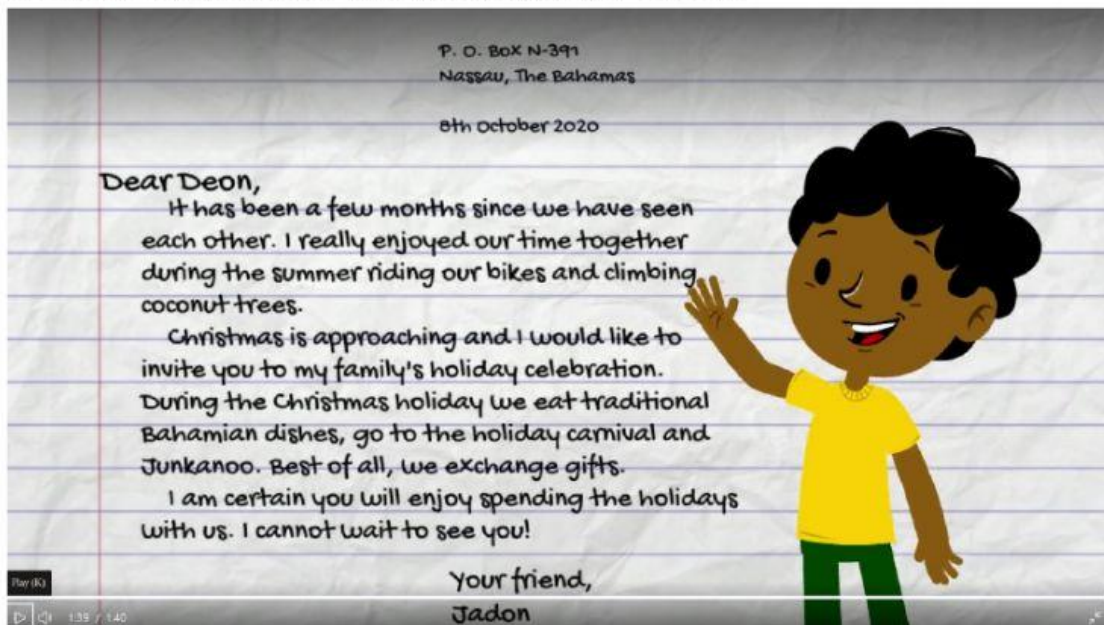 P. O. Box N-391
Nassau, The Bahamas
8th October 2020
Dear Deon,
It has been a few months since we have seen
each other. I really enjoyed our time together
during the summer riding our bikes and climbing
coconut trees.
Christmas is approaching and I would like to
invite you to my family's holiday celebration.
During the Christmas holiday we eat traditional
Bahamian dishes, go to the holiday carnival and
Junkanoo. Best of all, we exchange gifts.
I am certain you will enjoy spending the holidays
with us. I cannot wait to see you!
Your friend,
Play (K)
Jadon
1:39 / 1:40